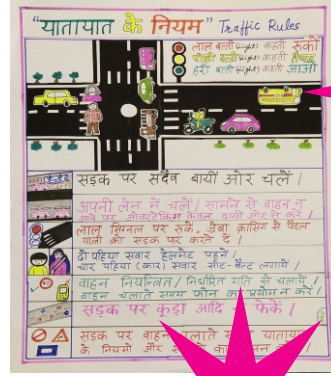 "यातायात के नियम" Traffic Rules
लाल बत्ती (light) कहती रूको
पीली बत्ती (light) कहती
हरी बत्ती (light) कहती जाओ
सड़क पर सदैव बायीं ओर चलें।
अपनी लेन में चलें। सामने से वाहन न
आने पर ओवरटेकिंग केवल दायीं ओर से करें।
लाल सिग्नल पर रूके, जेब्रा क्रासिंग से पैदल
यात्री को सड़क पार करने दें।
दो पहिया सवार हेलमेट पहनें।
चार पहिया (कार) सवार सीट बैल्ट लगायें।
वाहन नियन्त्रित / निर्धारित गति से चलायें।
वाहन चलाते समय फोन का प्रयोग न करें।
सड़क पर कूड़ा आदि न फेंकें।
सड़क पर वाहन चलाते यातायात
के नियमों और